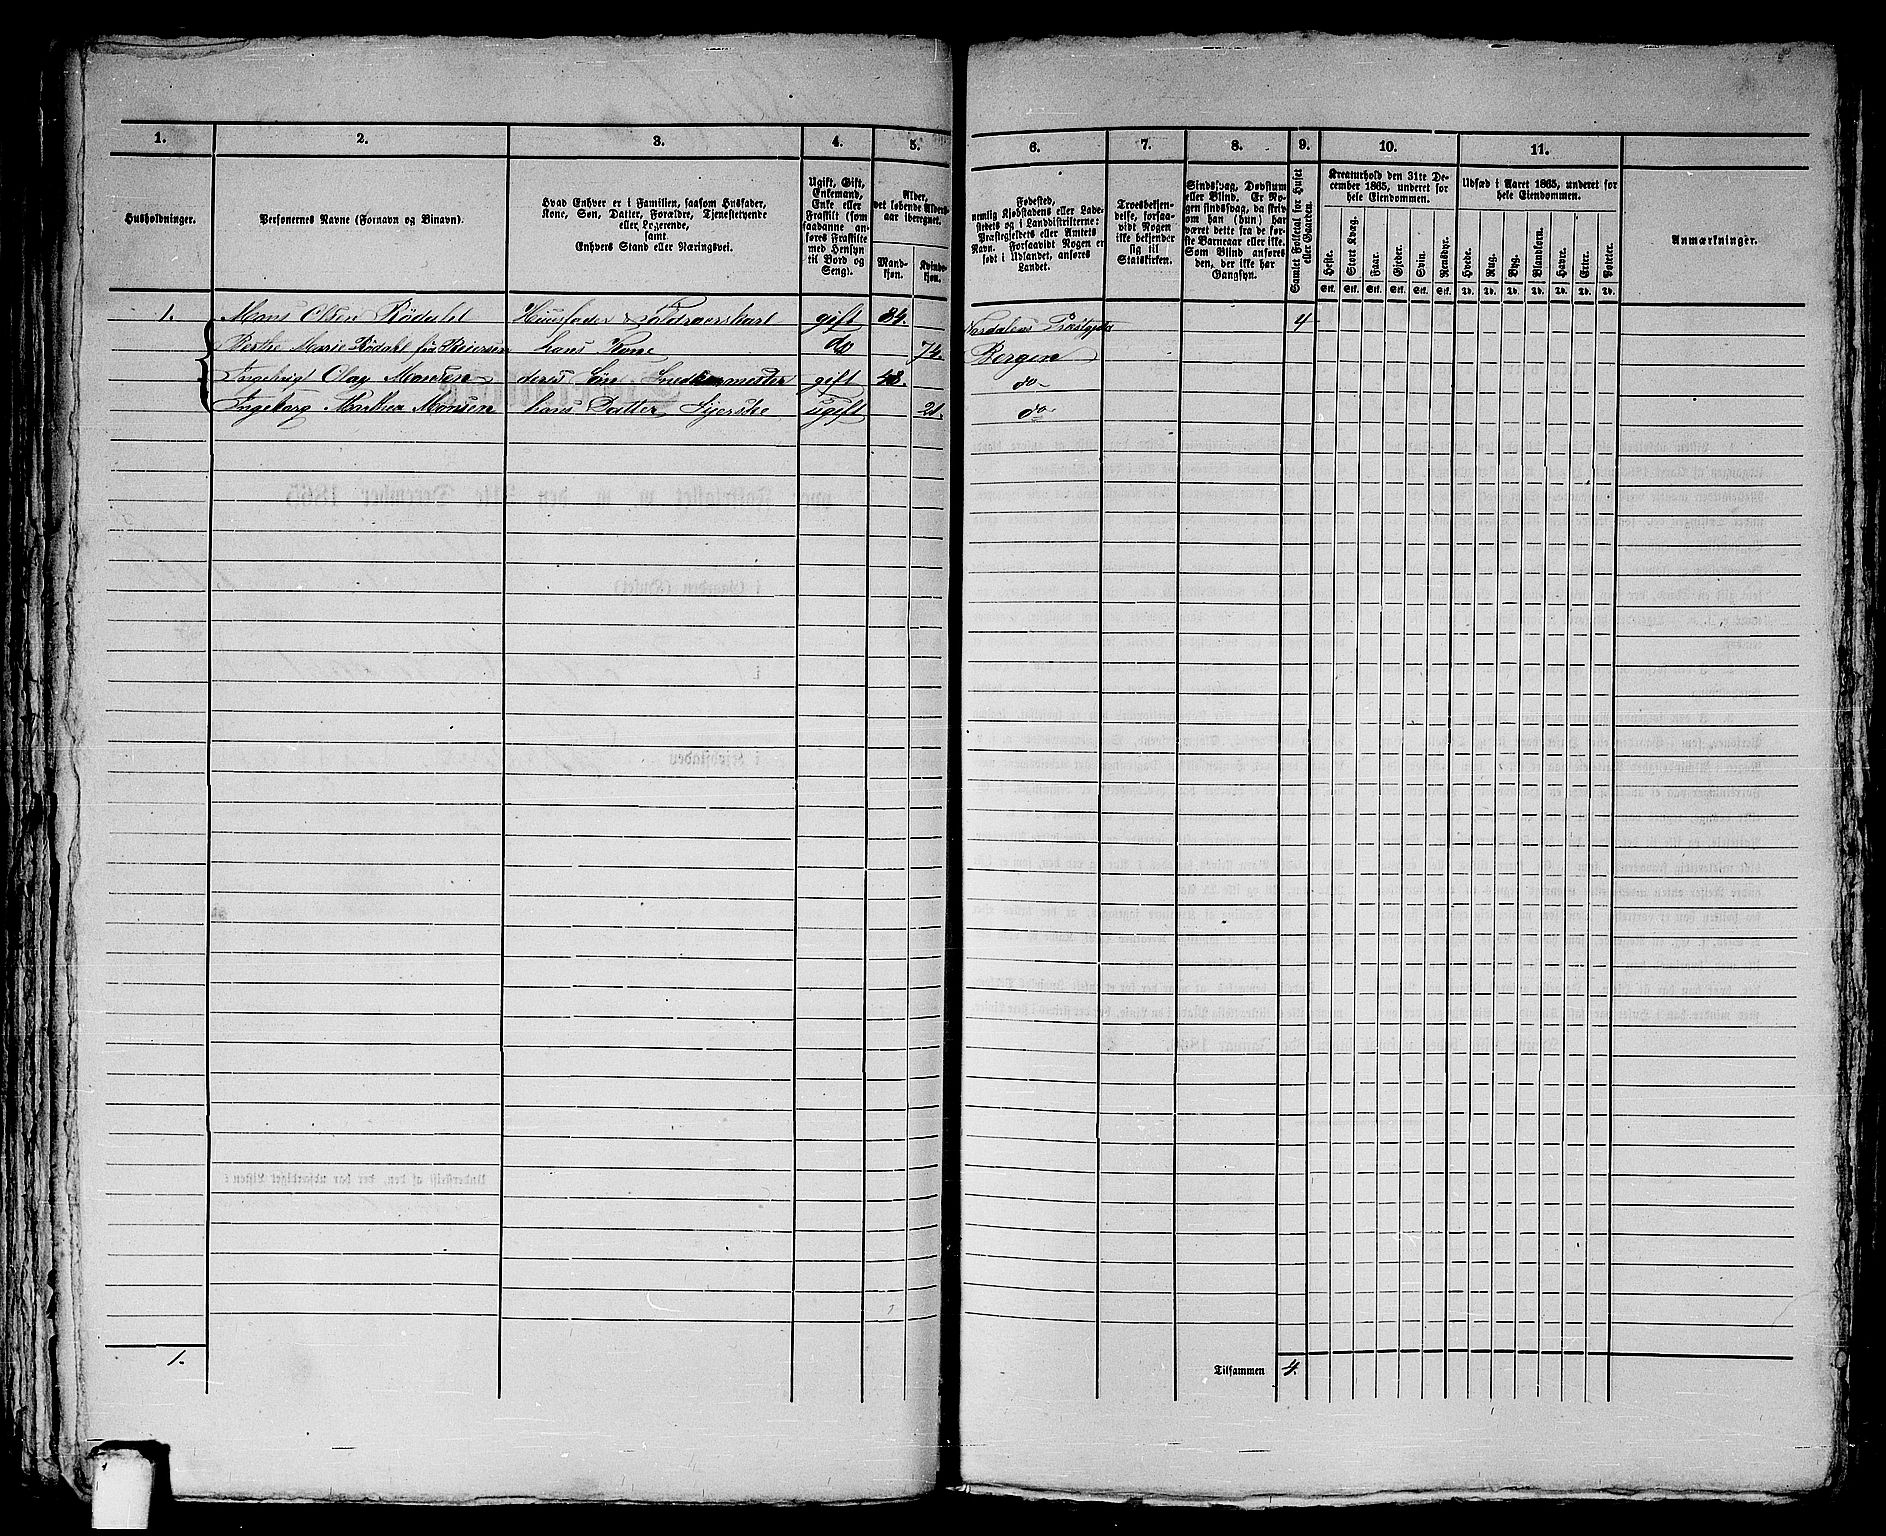 1.
2.
3.
4.
5.
6.
7.
8.
9.
10.
11.
Husholdninger.
Personernes Navne (Fornavn og Binavn).
Hvad Enhver er i Familien, saasom Husfader,
Kone, Søn, Datter, Forældre, Tjenestetyende
eller Logerende,
samt
Enhvers Stand eller Næringsvei.
Ugift, Gift,
Enkemand,
Enke eller
Fraskilt (som
saadanne an-
føres Fraskilte
med Hensyn
til Bord og
Seng).
Alder,
det løbende Alders-
aar iberegnet.
Mand-
kjøn.
Kvinde-
kjøn.
Fødested,
nemlig Kjøbstadens eller Lade-
stedets og i Landdistrikterne:
Præstegjeldets eller Amtets
Navn. Forsaavidt Nogen er
født i Udlandet, anføres
Landet.
Troesbekjen-
delse, forsaa-
vidt Nogen
ikke bekjender
sig til
Statskirken.
Sindssvag, Døvstum
eller Blind. Er No-
gen sindssvag, da skriv
om han (hun) har
været dette fra de før-
ste Barneaar eller ikke.
Som Blind anføres
den, der ikke har
Gangsyn.
Samlet Folketal for Huset
eller Gaarden.
Kreaturhold den 31te De-
cember 1865, underet for
hele Eiendommen.
Heste.
Stort Kvæg.
Faar.
Gjeder.
Svin.
Rensdyr.
Stk. Stk. Stk. Stk. Stk. Stk.
Udsæd i Aaret 1865, underet for
hele Eiendommen.
Hvede.
Rug.
Byg.
Blandkorn.
Havre.
Erter.
Poteter.
Td. Td. Td. Td. Td. Td. Td.
Anmærkninger.
1. Mons Olsen Rödahl Huusfader gift 84. 4
Berthe Marie Rödahl hans Kone do 74. Bergen
Ingebrigt Olay Monsen deres Sön Snedkermester gift 48. do
Ingeborg Marthea Monsen hans Datter Syerske ugift 21. do
1.
Tilsammen 4.